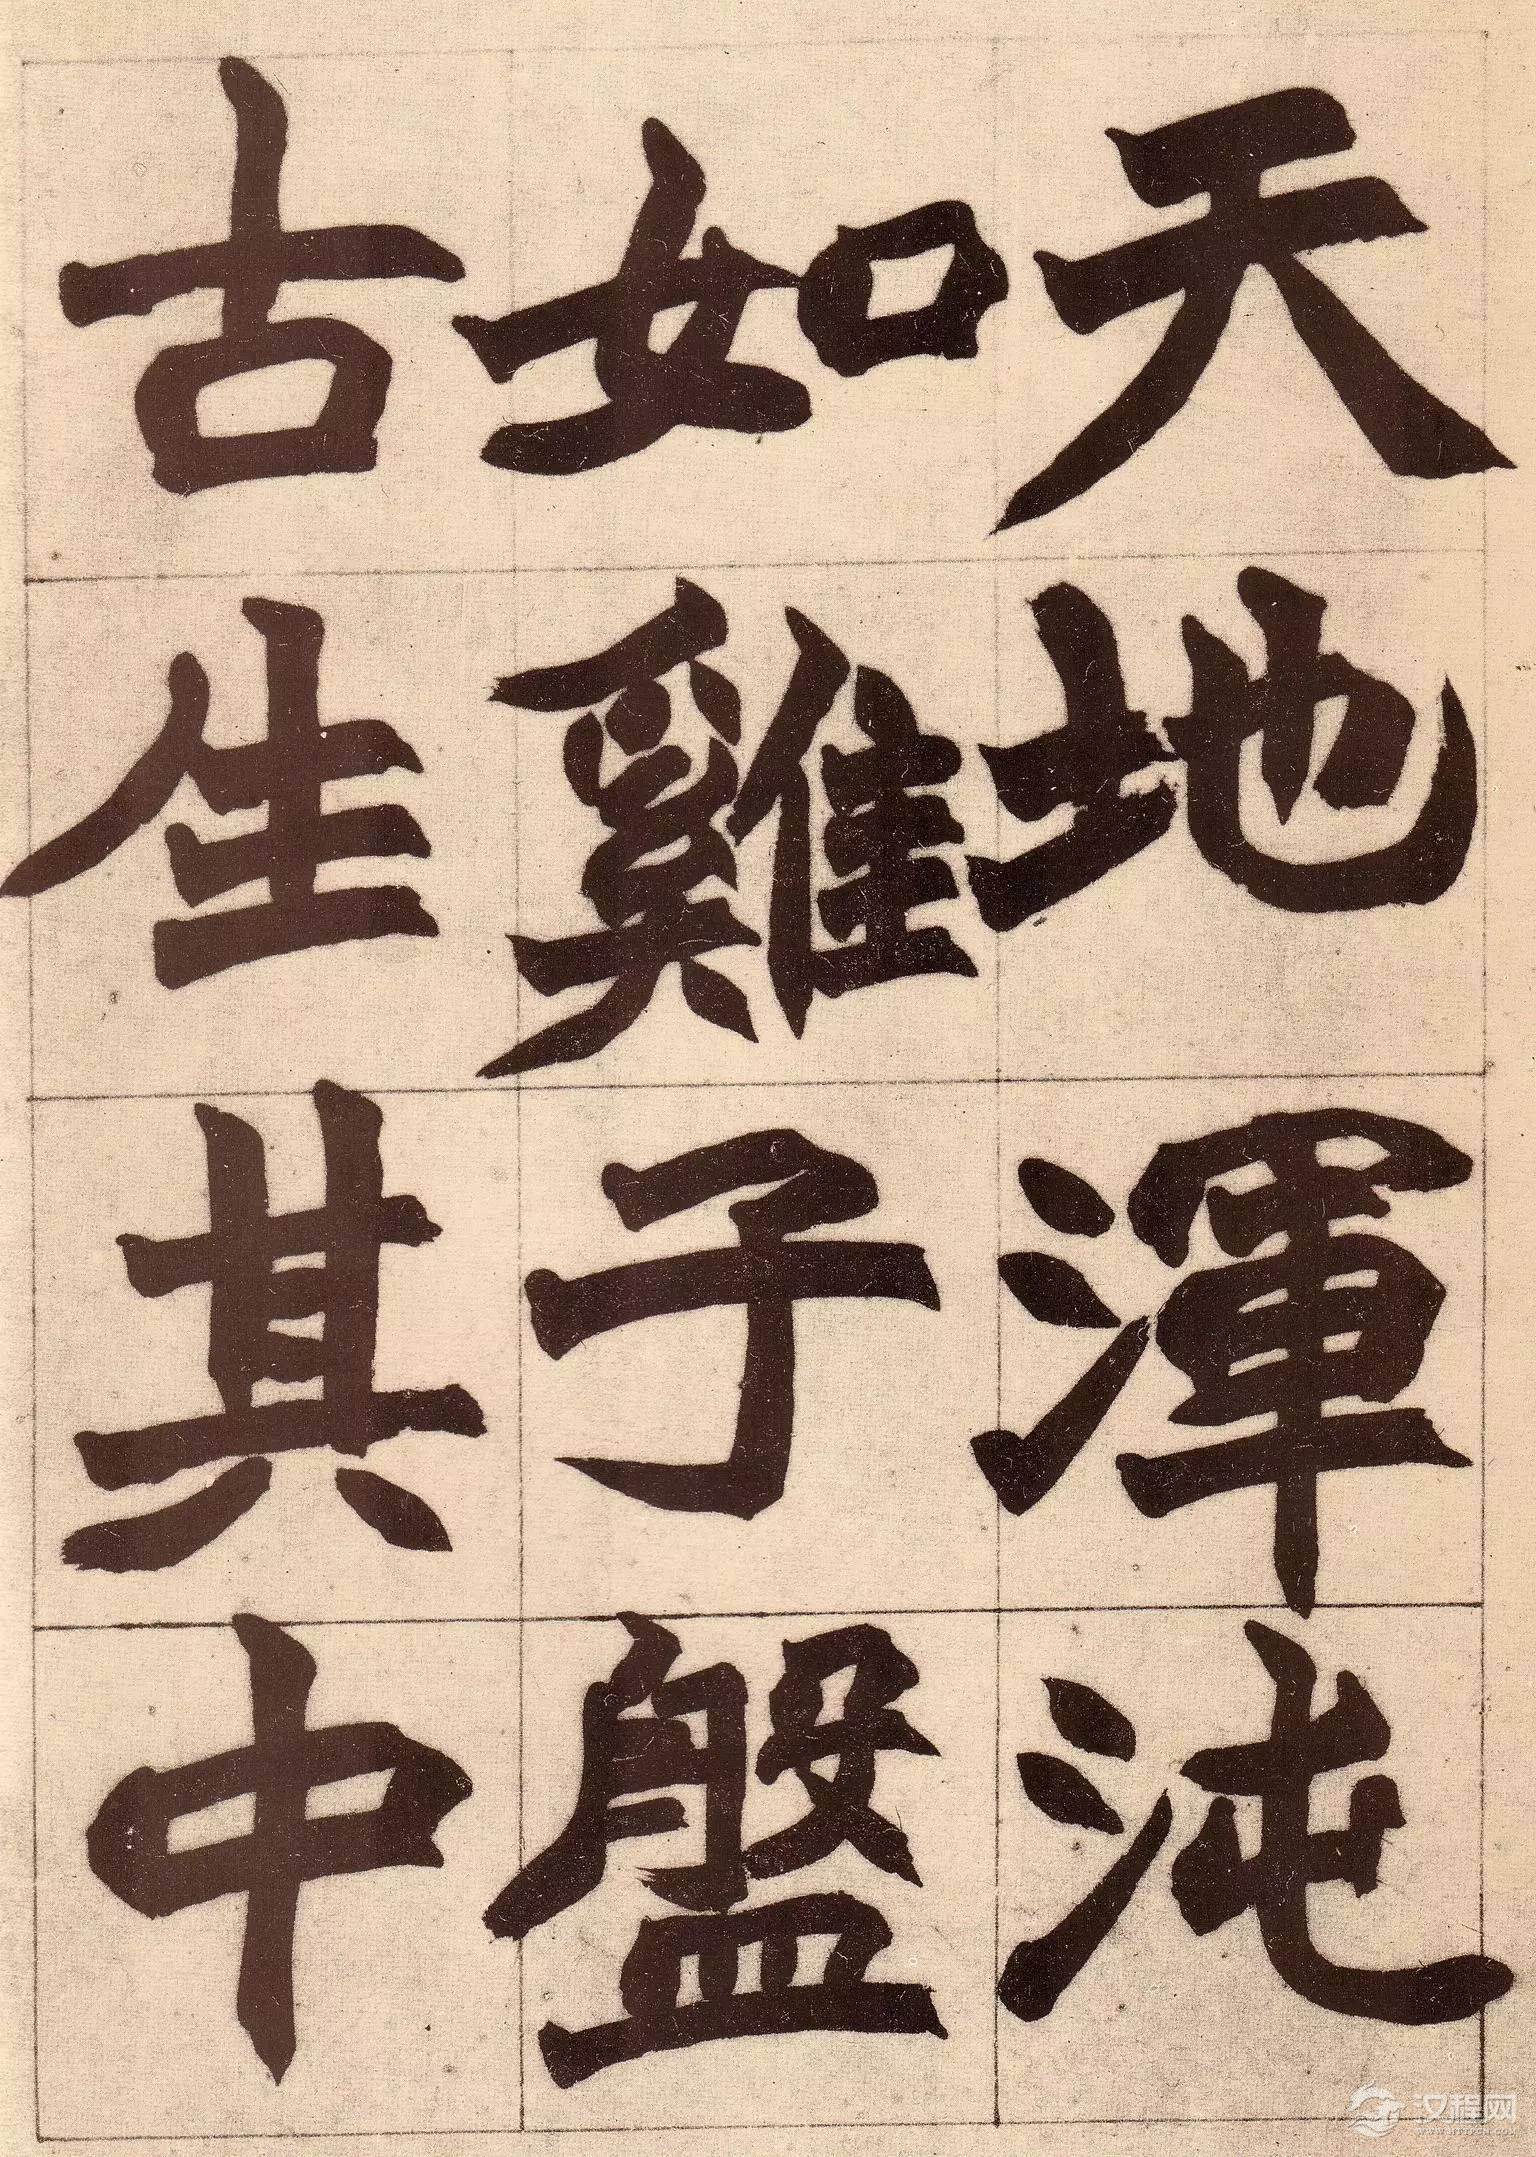 天地渾沌
如雞子盤
古生其中
汉程网
WWW.HTTPCN.COM